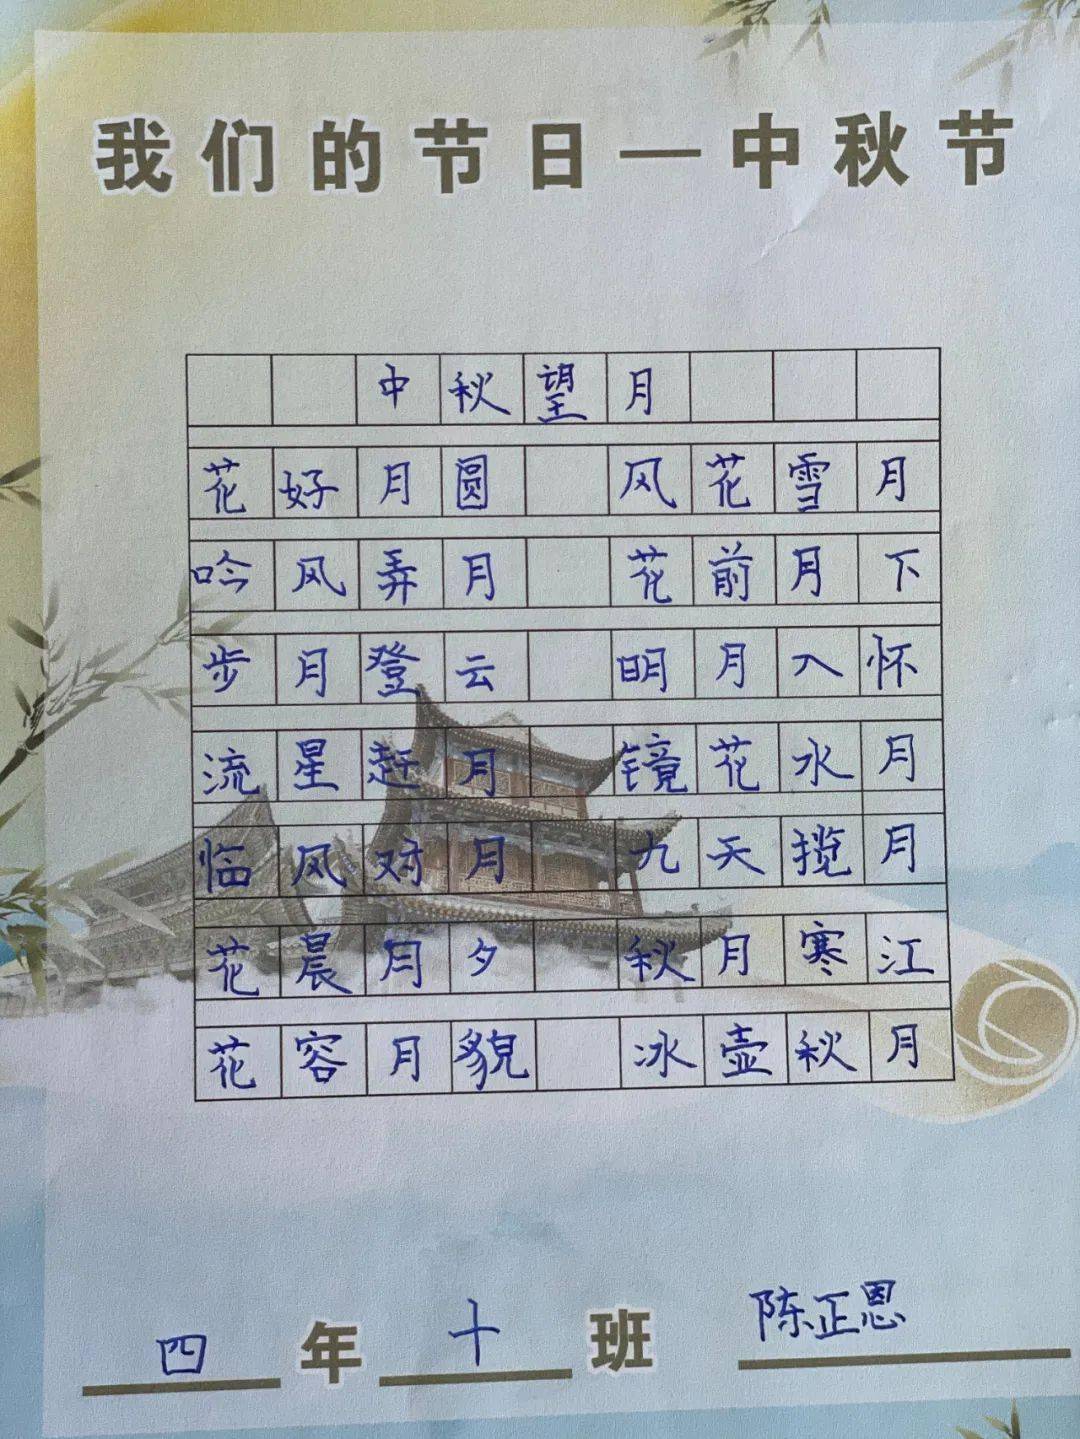 我们的节日—中秋节
中秋望月
花好月圆 风花雪月
吟风弄月 花前月下
步月登云 明月入怀
流星赶月 镜花水月
临风对月 九天揽月
花晨月夕 秋月寒江
花容月貌 冰壶秋月
四年十班 陈正恩